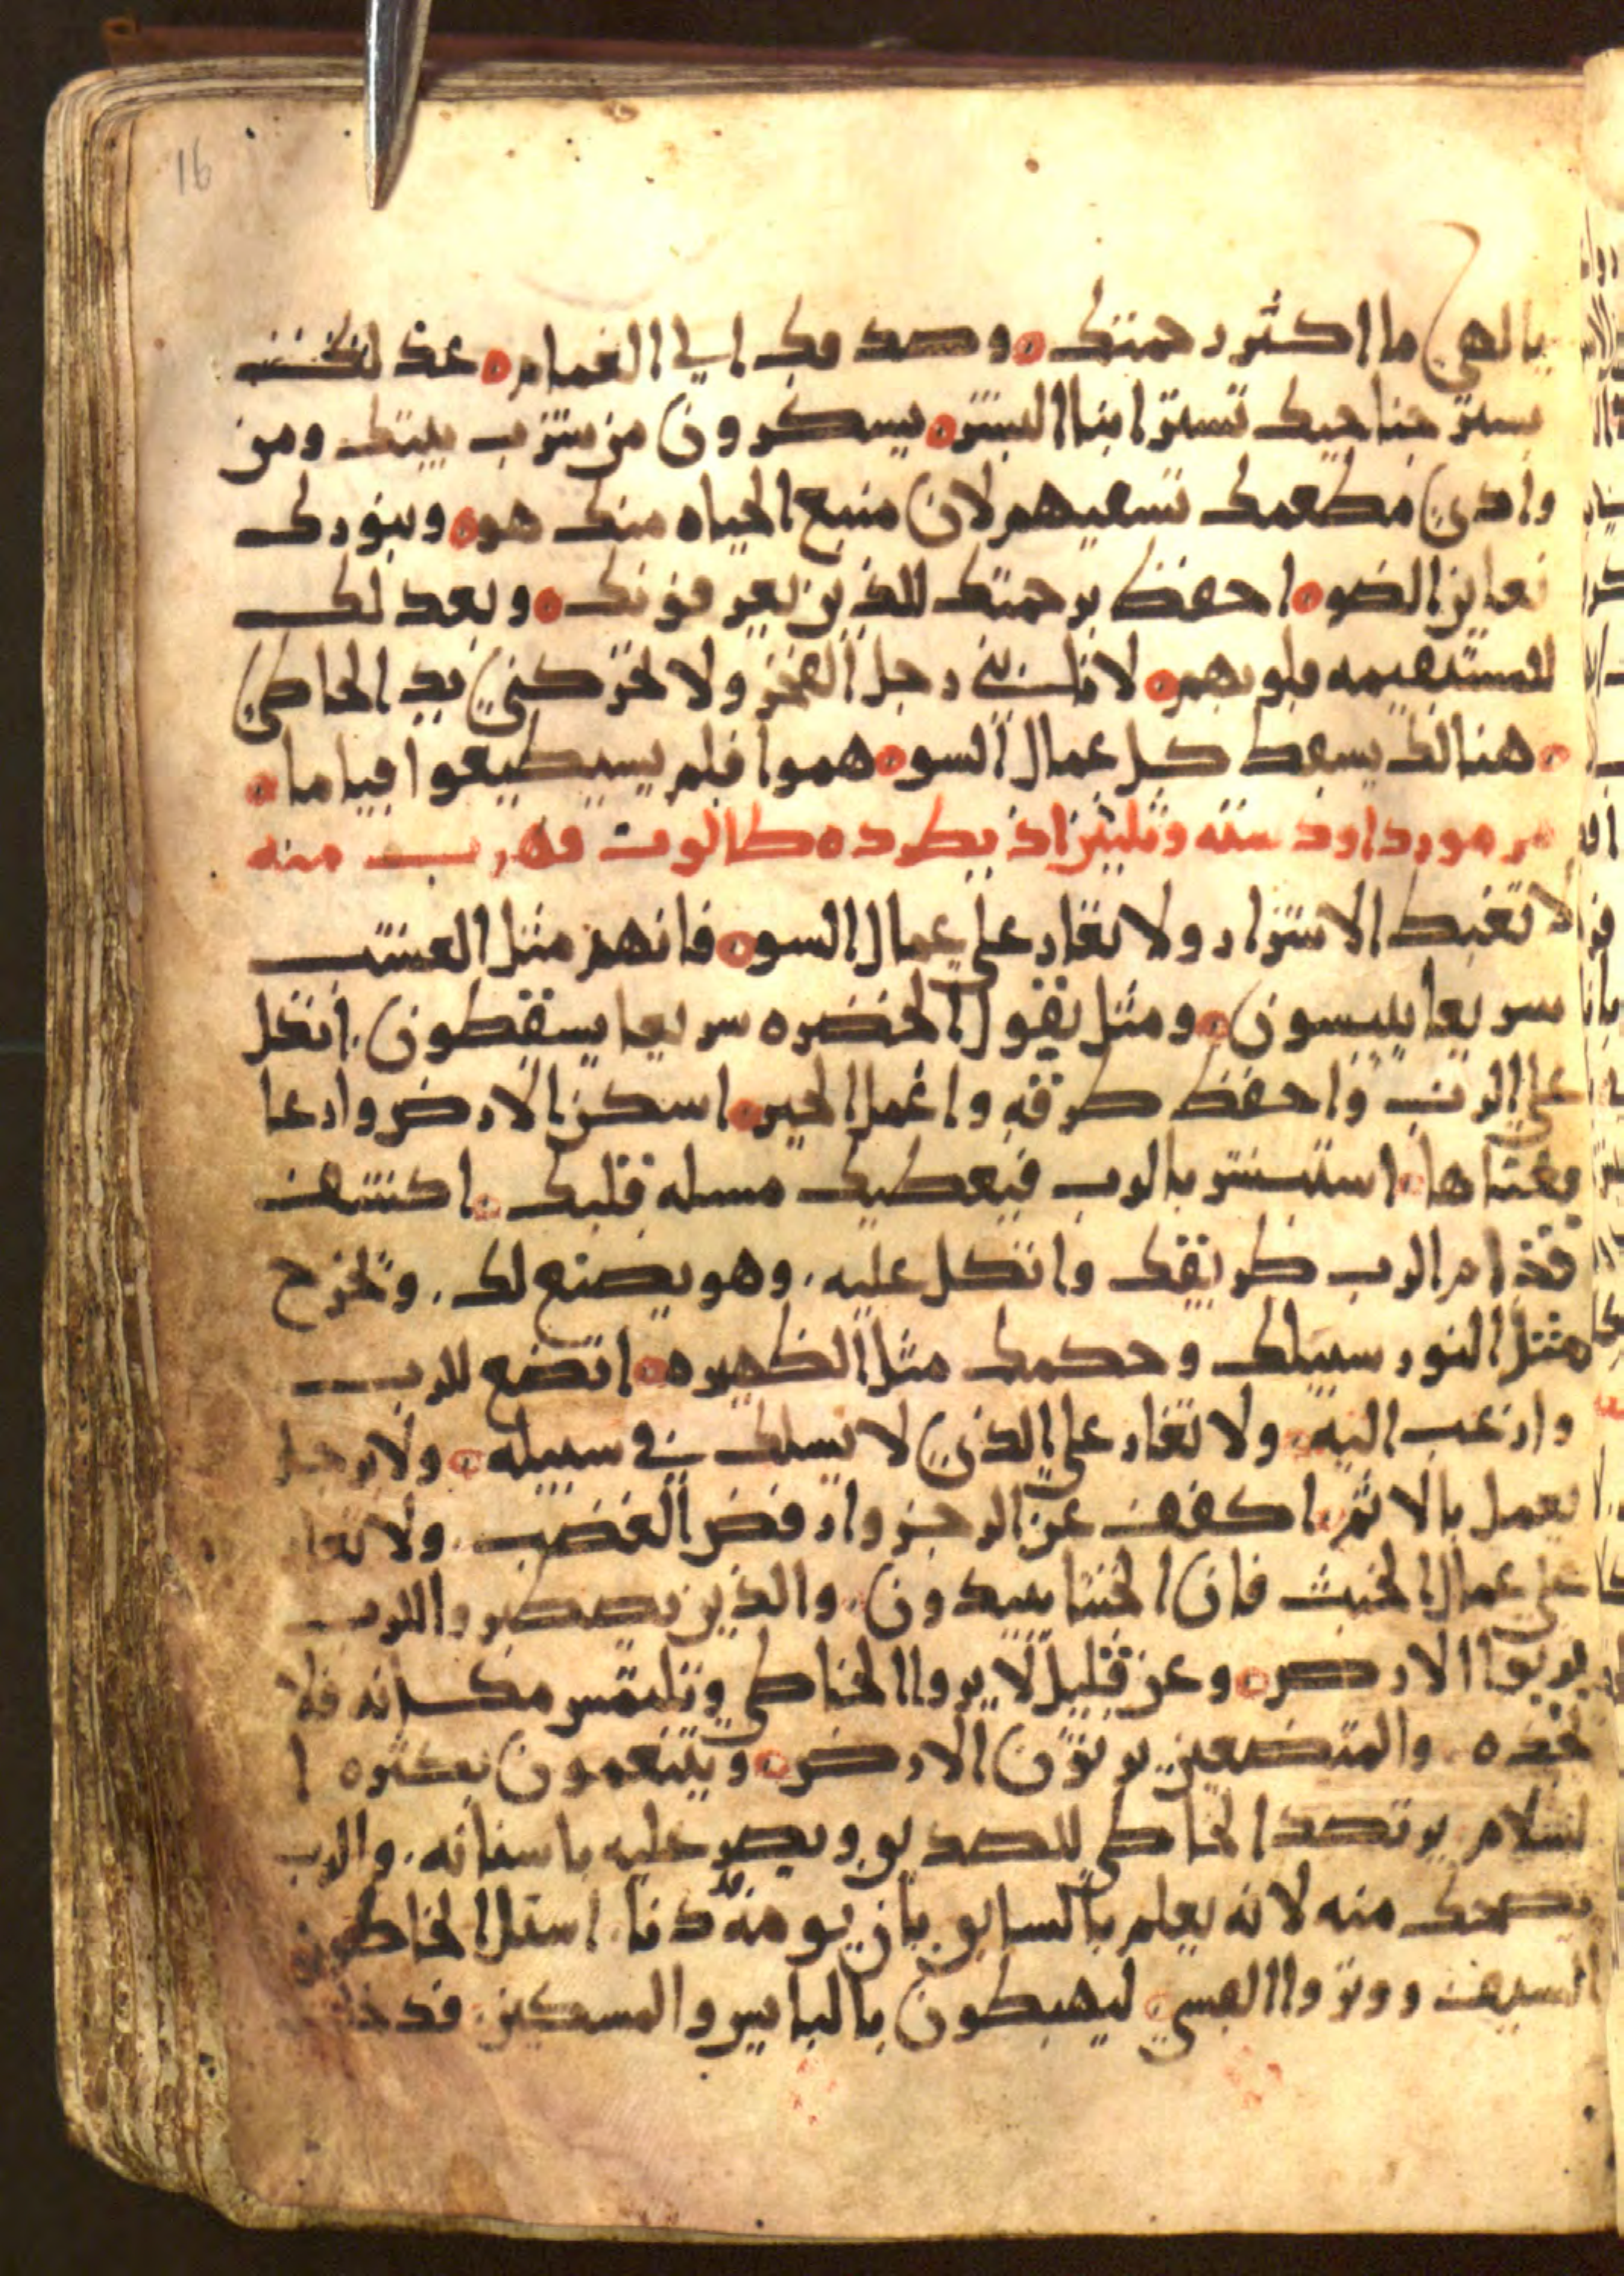 16
يا الهي ما اكثر رحمتك ٥ وصدقك الي الغمام ٥ عند كنف
بستر جناحيك تستر ابنا البشر ٥ يسكرون من شرب بيتك ومن
وادي مطعمك تسقيهم لان منبع الحياه منك هو ٥ وبنورك
نعاين الضو ٥ احفظ برحمتك للذين يعرفونك ٥ وبعدلك
للمستقيمه قلوبهم ٥ لا تاتيني رجل الفخر ولا تحركني يد الخاطي
٥ هنالك يسقط كل عمال السو ٥ هموا فلم يستطيعوا قياما ٥
مزمور داود سته وثلثين اذ يطرده طالوت فهرب منه
لا تغبط الاشرار ولا تغار علي عمال السو ٥ فانهم مثل العشب
سريعا ييبسون ٥ ومثل بقول الخضره سريعا يسقطون . اتكل
علي الرب واحفظ طرقه واعمل الخير ٥ اسكن الارض وارعا
معناها ٥ استبشر بالرب فيعطيك مسله قلبك ٥ اكشف
قدام الرب طريقك واتكل عليه . وهو يصنع لك . وتخرج
مثل النور سبيلك وحكمك مثل الظهيره ٥ اتضع للرب
وارغب اليه ٥ ولا تغار علي الذي لا يسلك في سبيله ٥ ولا برجل
يعمل بالاثم ٥ اكفف عن الرجز وارفض الغضب . ولا تغار
علي عمال الخبث فان الخبثا يبيدون . والذين يصطبروا للرب
يرثوا الارض ٥ وعن قليل لا يروا الخاطي وتلتمس مكانه فلا
تجده . والمتضعين يرثون الارض ٥ ويتنعمون بكثره ا
لسلام يرتصد الخاطي للصديق ويصر عليه باسنانه . والرب
يضحك منه لانه يعلم بالسابق بان يومه قد دنا . استل الخاطون
السيف ووتروا القسي ٥ ليهبطون بالبايس والمسكين .